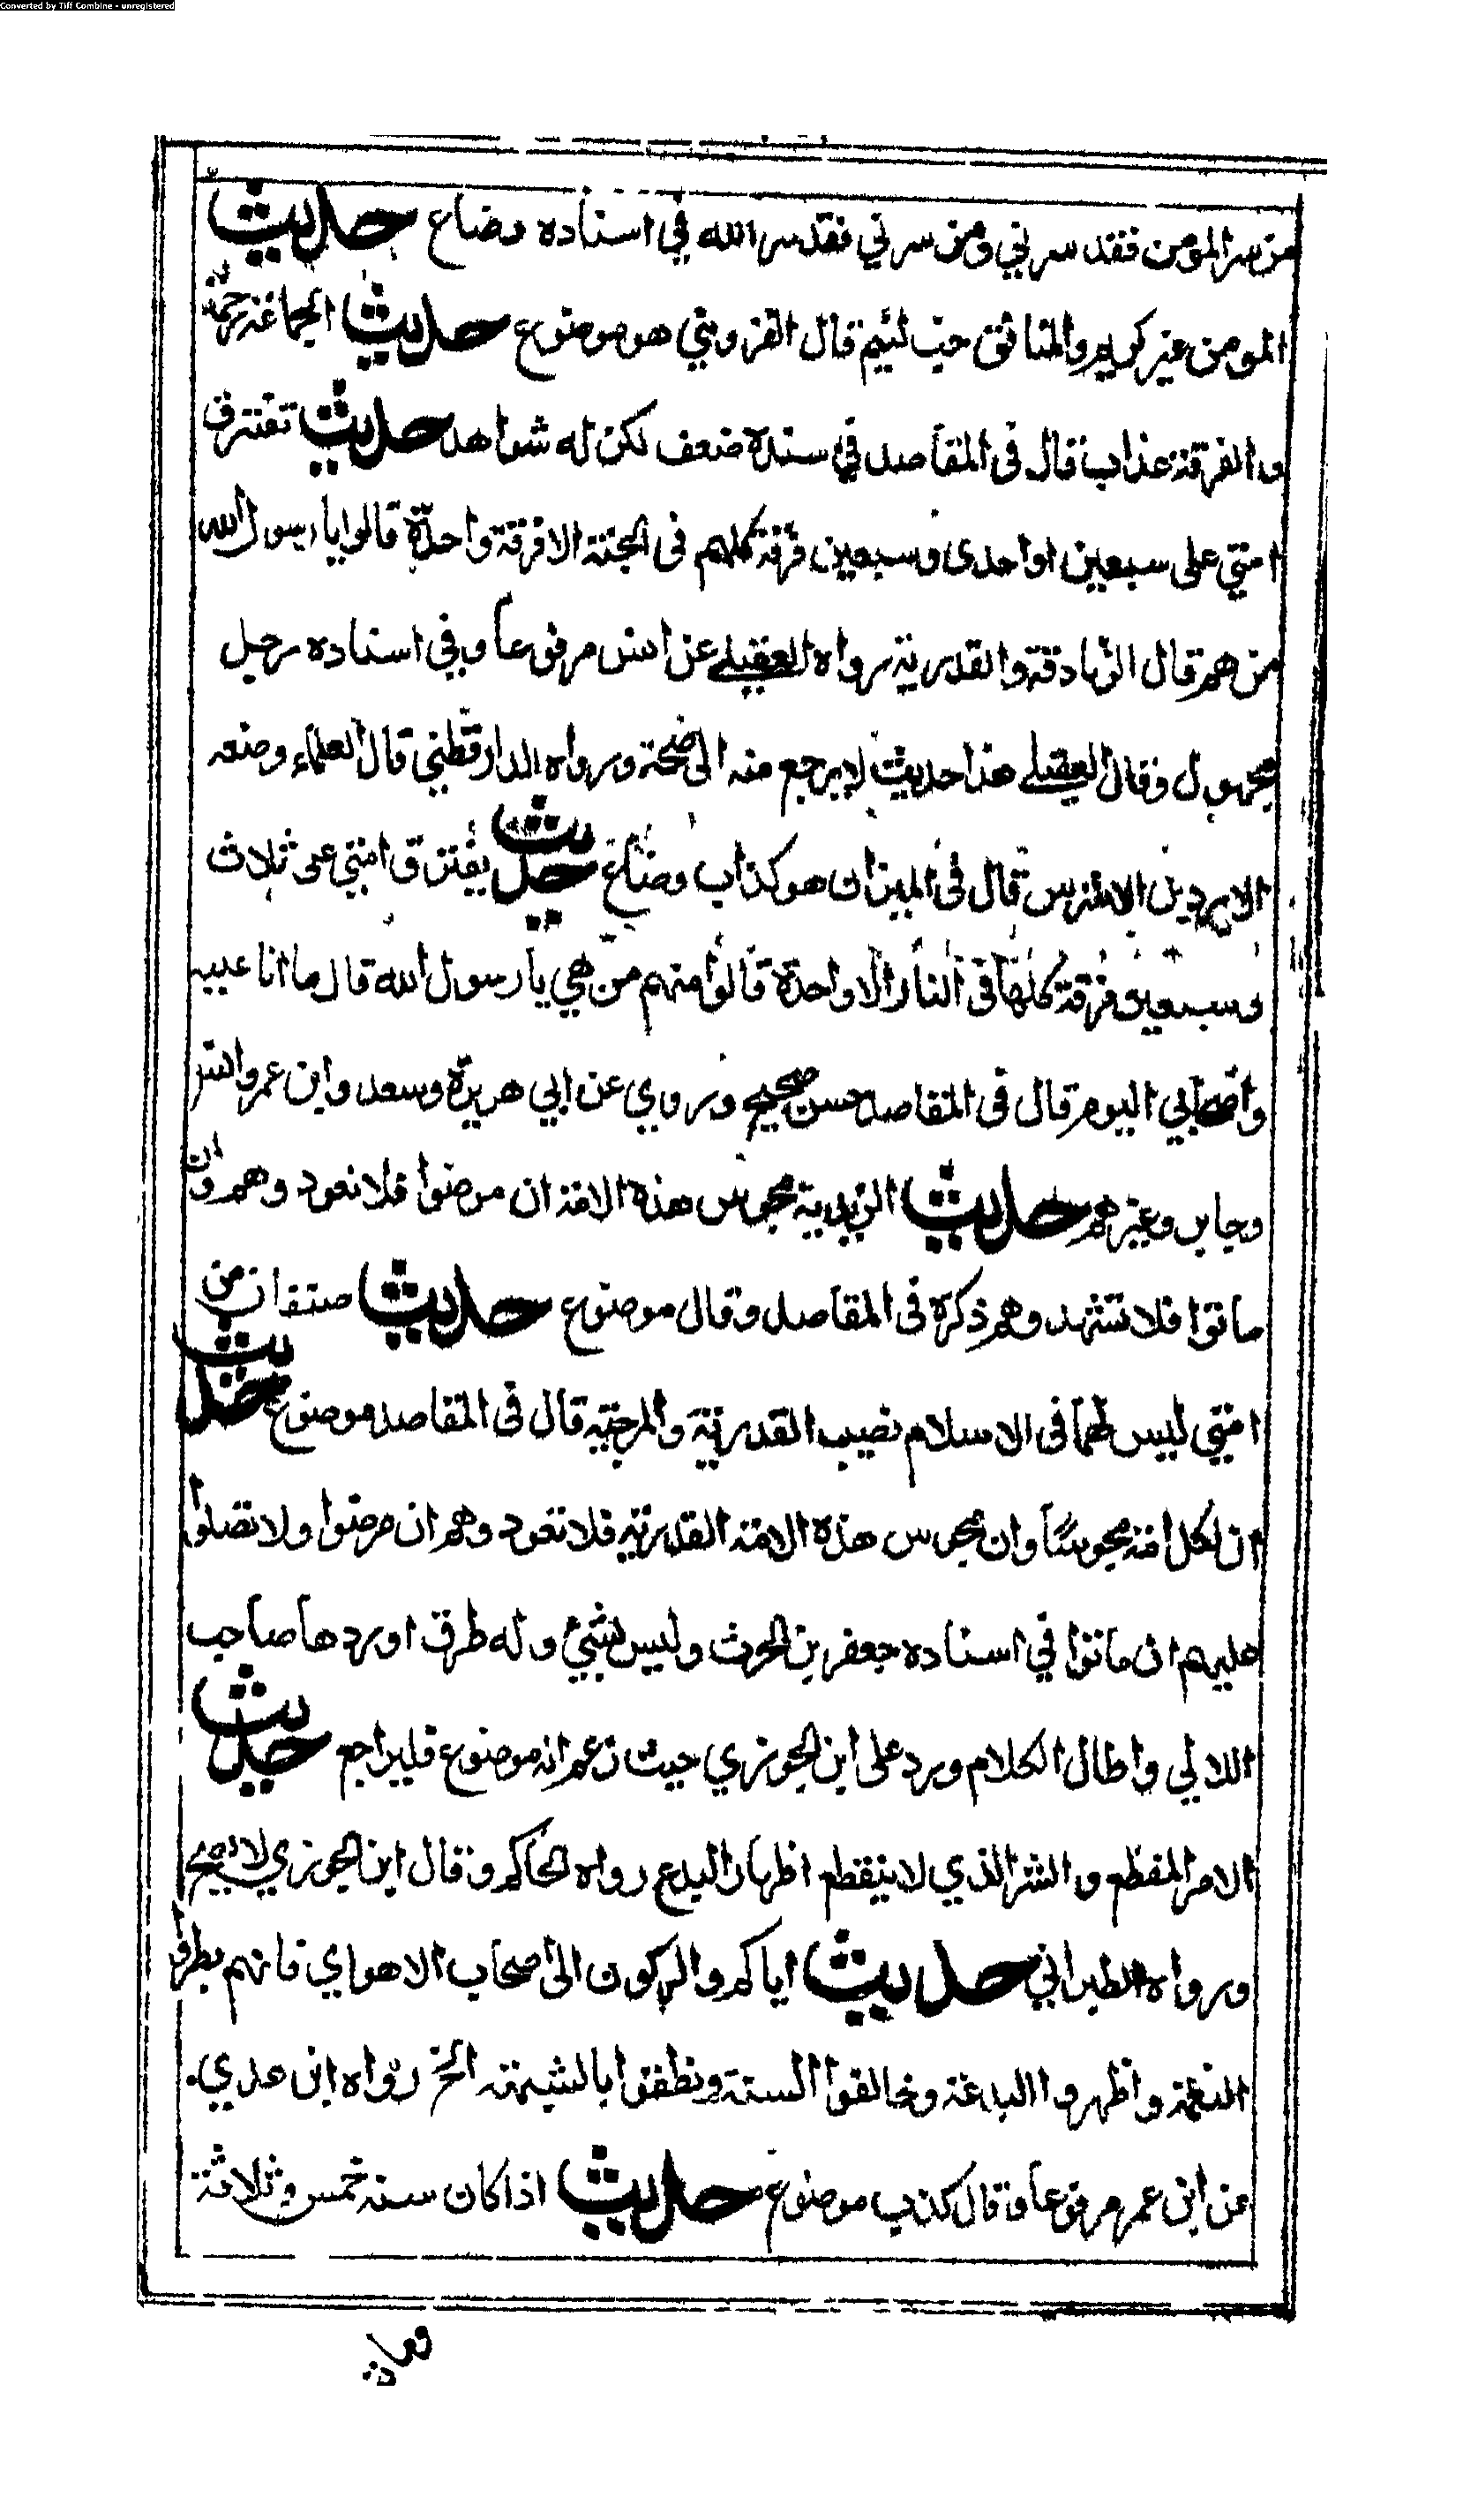 Converted by Tiff Combine - unregistered
من سر المومن فقد سرني ومن سرني فقد سر الله في اسناده وضاع حديث
المومن غر كريم والمنافق خب لئيم قال القزويني هو موضوع حديث الجماعة رحمة
والفرقة عذاب قال في المقاصد في سنده ضعف لكن له شواهد حديث تفترق
امتي على سبعين او احدى وسبعين فرقة كلهم في الجنة الا فرقة واحدة قالوا يا رسول الله
من هم قال الزنادقة والقدرية رواه العقيلي عن انس مرفوعا وفي اسناده رجل
مجهول وقال العقيلي هذا حديث لا يرجع منه الى صحة ورواه الدارقطني قال العلماء وضعه
الابرد بن الاشرس قال في الميزان هو كذاب وضاع حديث يفترق امتي على ثلاث
وسبعين فرقة كلها في النار الا واحدة قالوا منهم من هي يا رسول الله قال ما انا عليه
واصحابي اليوم قال في المقاصد حسن صحيح وروي عن ابي هريرة وسعد وابن عمر وانس
وجابر وغيرهم حديث الزيدية مجوس هذه الامة ان مرضوا فلا تعود وهم وان
ماتوا فلا تشهد وهم ذكره في المقاصد وقال موضوع حديث صنفان من
امتي ليس لهما في الاسلام نصيب القدرية والمرجئة قال في المقاصد موضوع حديث
ان لكل امة مجوسا وان مجوس هذه الامة القدرية فلا تعود وهم ان مرضوا ولا تصلوا
عليهم ان ماتوا في اسناده جعفر بن الحرث وليس بشيئ وله طرق اوردها صاحب
اللالي واطال الكلام ورد على ابن الجوزي حيث زعم انه موضوع فليراجع حديث
الامر المفظع والشر الذي لا ينقطع اظهار البدع رواه الحاكم وقال ابن الجوزي لا يصح
ورواه الطبراني حديث اياكم والركون الى اصحاب الاهواي فانهم بطروا
النعمة واظهروا البدعة وخالفوا السنة ونطقوا بالشبهة الخ رواه ابن عدي
عن ابن عمر مرفوعا وقال كذب موضوع حديث اذا كان سنة خمس وثلاثة